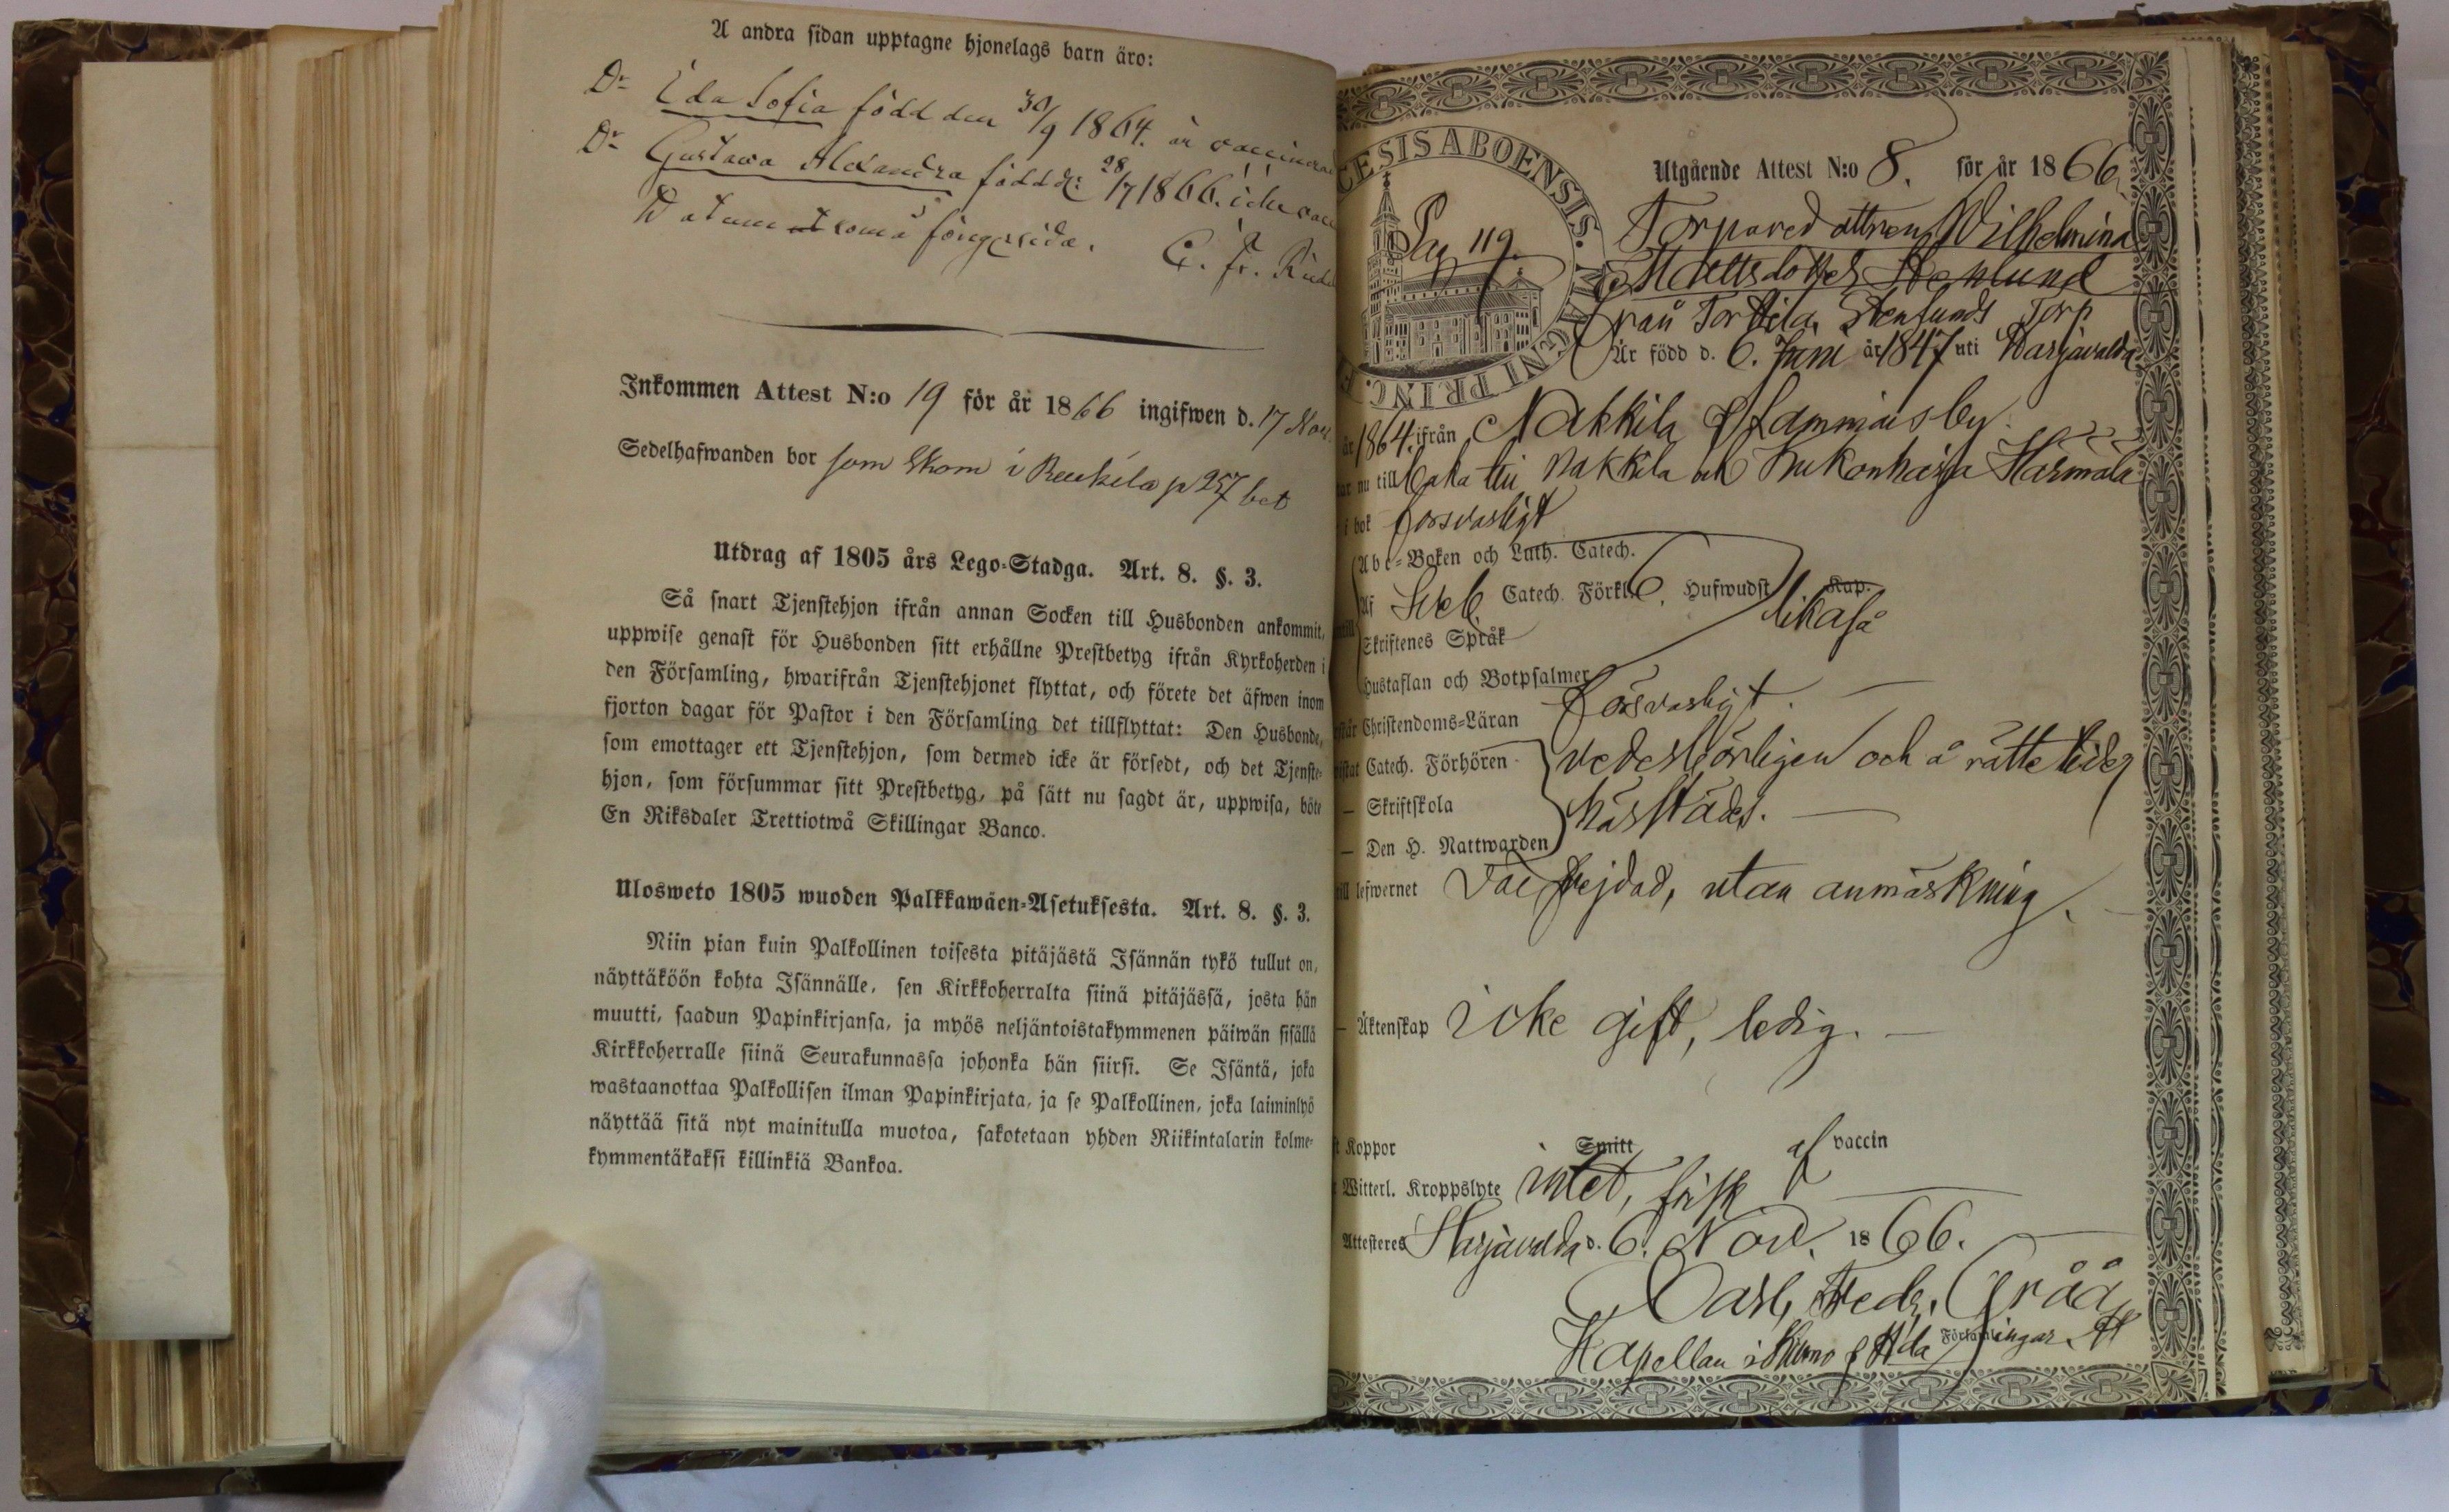 A andra sidan upptagne hjonelags barn äro:
Dr Ida Sofia född den 30/9 1864. är
Dr Gustava Alexandra född d: 28/7 1866. icke
Datum som å
C. Fr.
Inkommen Attest N:o 19 för år 1866 ingifwen d. 17 Nov.
Sedelhafwanden bor som i p 257
Utdrag af 1805 års Lego-Stadga. Art. 8. §. 3.
Så snart Tjenstehjon ifrån annan Socken till Husbonden ankommit,
uppwise genast för Husbonden sitt erhållne Prestbetyg ifrån Kyrkoherden i
den Församling, hwarifrån Tjenstehjonet flyttat, och förete det äfwen inom
fjorton dagar för Pastor i den Församling det tillflyttat: Den Husbonde,
som emottager ett Tjenstehjon, som dermed icke är försedt, och det Tjenste-
hjon, som försummar sitt Prestbetyg, på sätt nu sagdt är, uppwisa, böte
En Riksdaler Trettiotwå Skillingar Banco.
Ulosweto 1805 wuoden Palkkawäen-Asetuksesta. Art. 8. §. 3.
Niin pian kuin Palkollinen toisesta pitäjästä Isännän tykö tullut on,
näyttäköön kohta Isännälle, sen Kirkkoherralta siinä pitäjässä, josta hän
muutti, saadun Papinkirjansa, ja myös neljäntoistakymmenen päiwän sisällä
Kirkkoherralle siinä Seurakunnassa johonka hän siirsi. Se Isäntä, joka
wastaanottaa Palkollisen ilman Papinkirjata, ja se Palkollinen, joka laiminlyö
näyttää sitä nyt mainitulla muotoa, sakotetaan yhden Riikintalarin kolme-
kymmentäkaksi killinkiä Bankoa.
CESIS ABOENSIS. MAGNI PRINC. F
Pag 119.
Utgående Attest N:o 8. för år 1866
Torparedottren Wilhelmina
Mattsdotter
från Torttila, Stenlunds Torp
Är född d. 6. Juni år 1847 uti Harjavalda
år 1864. ifrån Nakkila Lammais by.
nu tillbaka till Nakkila och Härmälä
i bok försvarligt
Abc-Boken och Luth. Catech.
Af Sveb. Catech. Förkl. 6. Hufwudst. Kap.
likaså
Skriftenes Språk
Hustaflan och Botpsalmer
Christendoms-Läran försvarligt.
Catech. Förhören vederbörligen och å rätte tider
— Skriftskola härstädes.
— Den H. Nattwarden
till lefwernet Väl frejdad, utan anmärkning.
— Äktenskap icke gift, ledig.
Koppor Smitt af vaccin
Witterl. Kroppslyte intet, frisk
Attesteres Harjavalda d. 6. Nov. 1866.
Carl Fredr. Gråå
Kapellan i Kiumo & H:da Församlingar